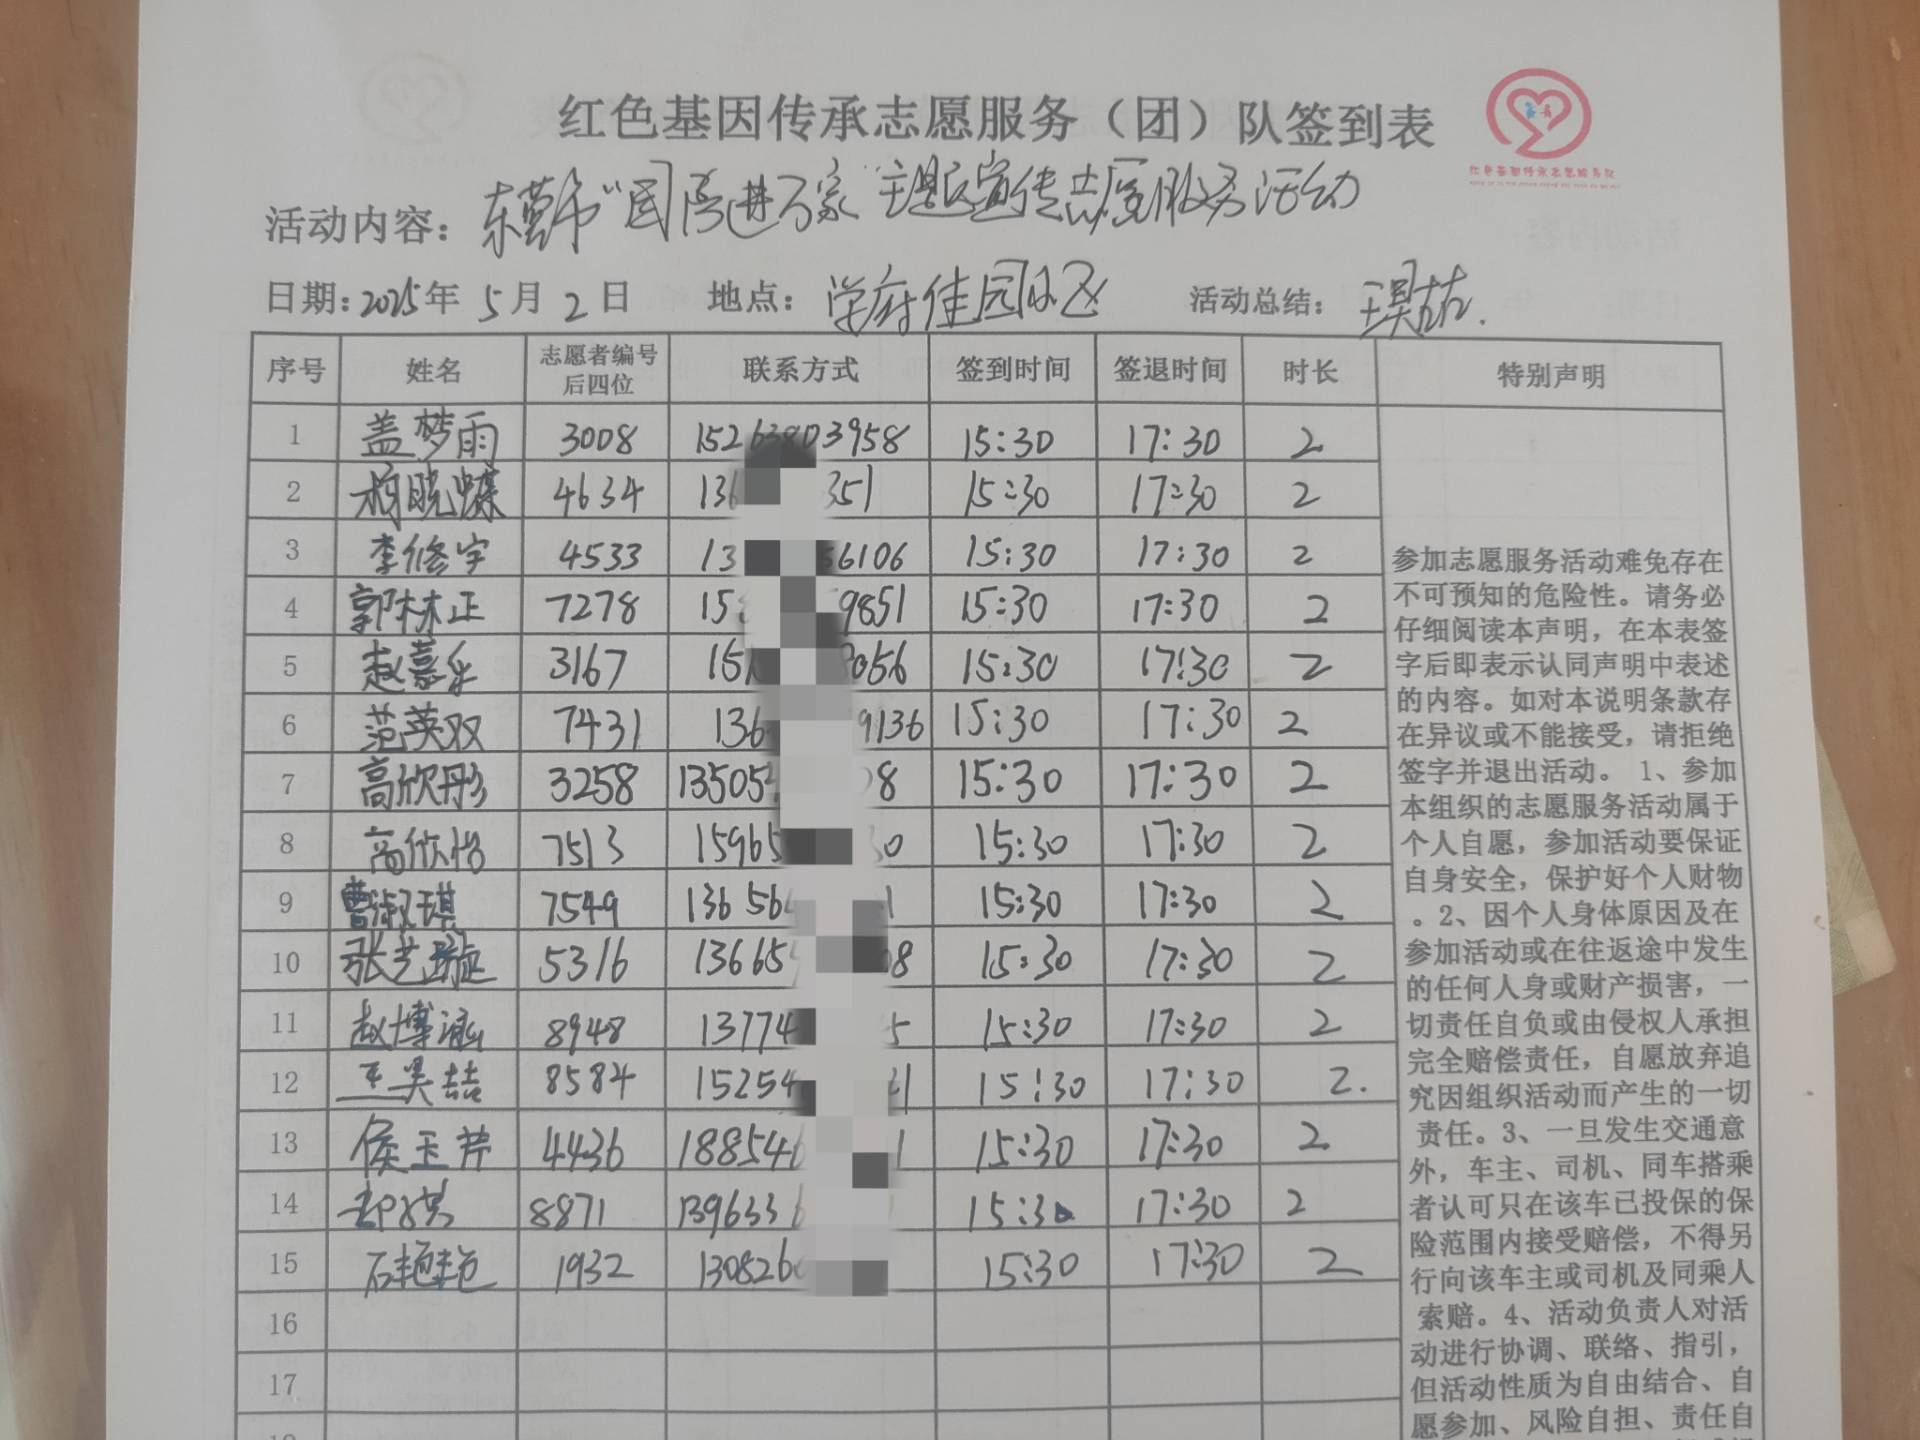 红色基因传承志愿服务（团）队签到表
活动内容：东营市“国医进万家”主题宣传志愿服务活动
日期：2025年5月2日 地点：学府佳园小区 活动总结：王昊喆.
序号 姓名 志愿者编号后四位 联系方式 签到时间 签退时间 时长 特别声明
1 盖梦雨 3008 152 3958 15:30 17:30 2
2 杨晓蝶 4634 136 351 15:30 17:30 2
3 李修宇 4533 13 6106 15:30 17:30 2
4 郭林正 7278 15 9851 15:30 17:30 2
5 赵嘉乐 3167 15 056 15:30 17:30 2
6 范英双 7431 136 9136 15:30 17:30 2
7 高欣彤 3258 13505 8 15:30 17:30 2
8 高欣怡 7513 15965 0 15:30 17:30 2
9 曹淑琪 7549 136564 1 15:30 17:30 2
10 张艺璇 5316 13665 08 15:30 17:30 2
11 赵博涵 8948 13774 5 15:30 17:30 2
12 王昊喆 8584 15254 1 15:30 17:30 2.
13 侯玉芹 4436 188546 1 15:30 17:30 2
14 8871 139633 15:30 17:30 2
15 石艳艳 1932 130826 15:30 17:30 2
16
17
参加志愿服务活动难免存在
不可预知的危险性。请务必
仔细阅读本声明，在本表签
字后即表示认同声明中表述
的内容。如对本说明条款存
在异议或不能接受，请拒绝
签字并退出活动。1、参加
本组织的志愿服务活动属于
个人自愿，参加活动要保证
自身安全，保护好个人财物
。2、因个人身体原因及在
参加活动或在往返途中发生
的任何人身或财产损害，一
切责任自负或由侵权人承担
完全赔偿责任，自愿放弃追
究因组织活动而产生的一切
责任。3、一旦发生交通意
外，车主、司机、同车搭乘
者认可只在该车已投保的保
险范围内接受赔偿，不得另
行向该车主或司机及同乘人
索赔。4、活动负责人对活
动进行协调、联络、指引，
但活动性质为自由结合、自
愿参加、风险自担、责任自